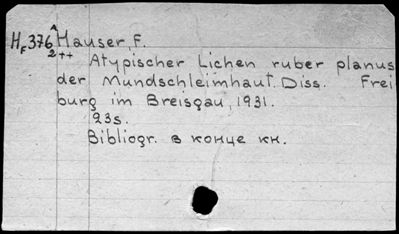 H_F 376 A/2++ Hauser, F.
Atypischer Lichen ruber planus
der Mundschleimhaut. Diss. Frei
burg im Breisgau, 1931.
23s.
Bibliogr. в конце кн.